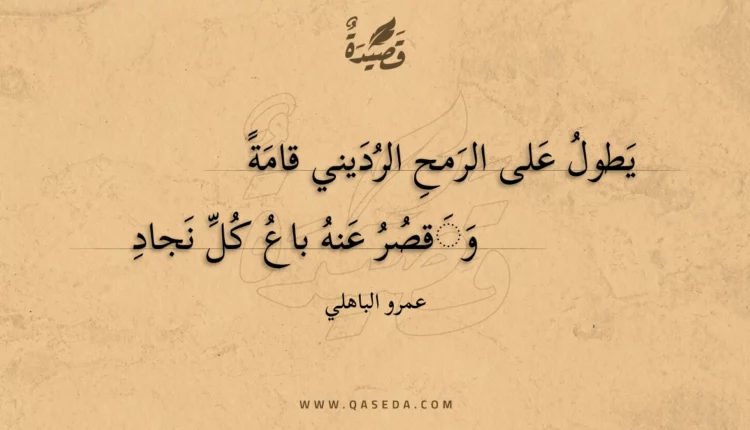 قَصِيدَةٌ
يَطولُ عَلى الرَمحِ الرُدَيني قامَةً
وَ◌َقصُرُ عَنهُ باعُ كُلِّ نَجادِ
عمرو الباهلي
WWW.QASEDA.COM